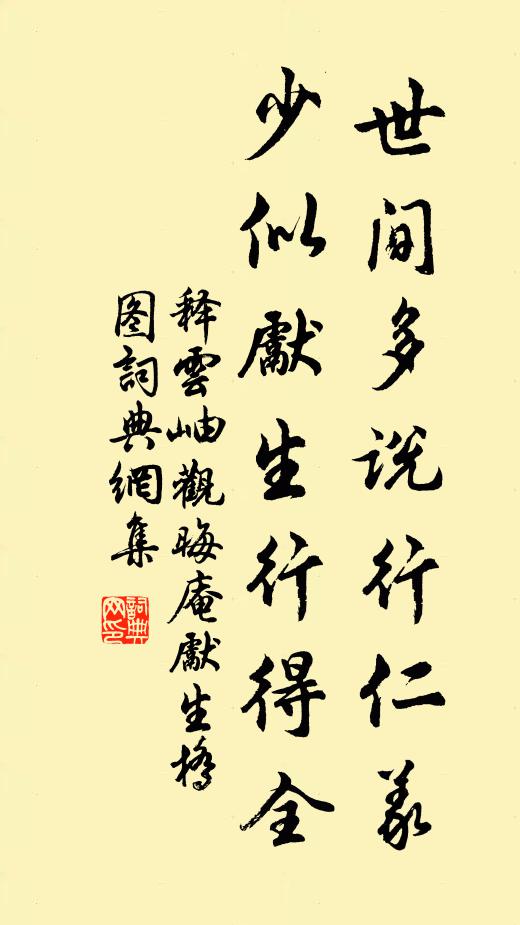 世间多说行仁义
少似獻生行得全
释雲岫觀晦庵獻生橋
图詞典網集
詞典
网印